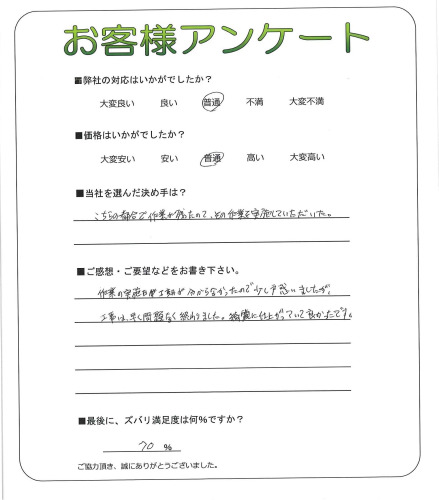 お客様アンケート
■弊社の対応はいかがでしたか？
大変良い 良い 普通 不満 大変不満
■価格はいかがでしたか？
大変安い 安い 普通 高い 大変高い
■当社を選んだ決め手は？
こちらの都合で作業が残たので、その作業を実施していただいた。
■ご感想・ご要望などをお書き下さい。
作業の実施日時が分からなかったので少し戸惑いましたが、
工事は、早く問題なく終わりました。綺麗に仕上がっていて良かったです。
■最後に、ズバリ満足度は何％ですか？
70 %
ご協力頂き、誠にありがとうございました。